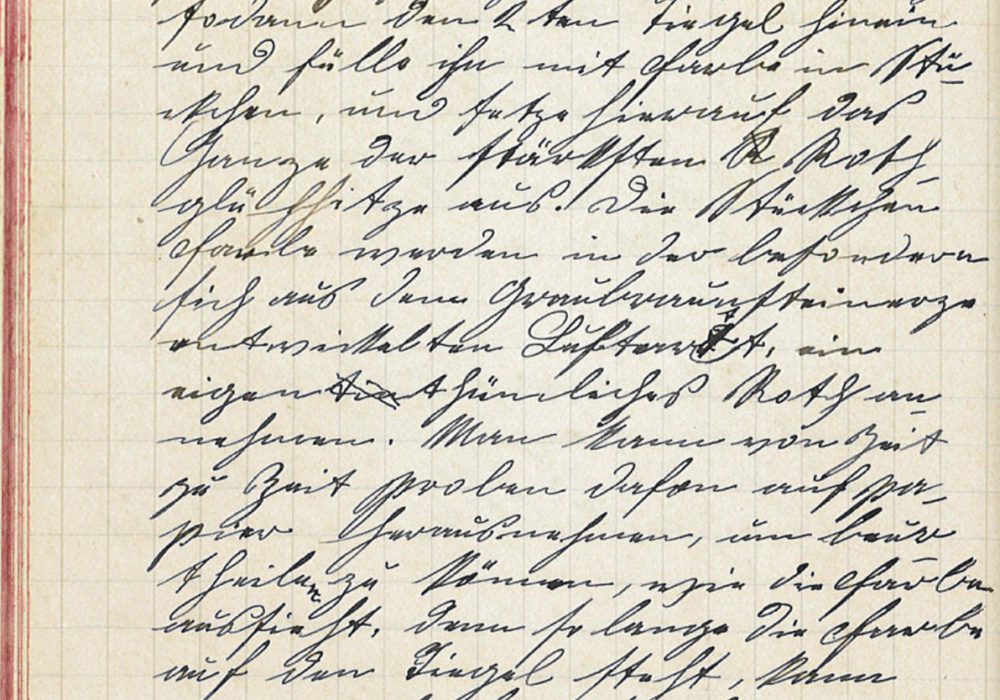 sodann den 2ten Tiegel hinein
und fülle ihn mit Farbe in Stü-
ckchen, und setze hierauf das
Ganze der stärksten R Roth
glühhitze aus. Die Stückchen
Farbe werden in der besondern
sich aus dem Graubraunsteinerze
entwickelten Luftart, ein
eigenthümliches Roth an
nehmen. Man kann von Zeit
zu Zeit Proben dafon auf Pa-
pier herausnehmen, um beur
theilen zu können, wie die Farbe
aussieht, denn so lange die Farbe
auf den Tiegel steht, kann